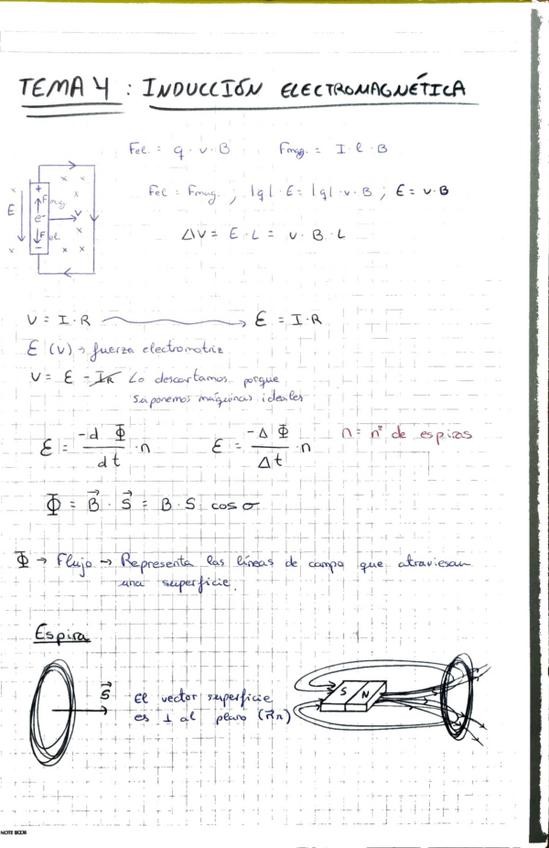 TEMA 4 : INDUCCIÓN ELECTROMAGNÉTICA
Fel. = q · v · B Fmag. = I · l · B
Fel = Fmag. ; |q| · E = |q| · v · B ; E = v · B
ΔV = E · L = v · B · L
+
E Fmag
e- v
Fel
-
V = I · R → Ɛ = I · R
Ɛ (V) → fuerza electromotriz
V = Ɛ - IR Lo descartamos porque
suponemos máquinas ideales
Ɛ = -d Φ / dt · n Ɛ = -Δ Φ / Δt · n n = nº de espiras
Φ = B⃗ · S⃗ = B · S · cos σ
Φ → Flujo → Representa las líneas de campo que atraviesan
una superficie.
Espira
S⃗ El vector superficie
es ⊥ al plano
S N
NOTE BOOK